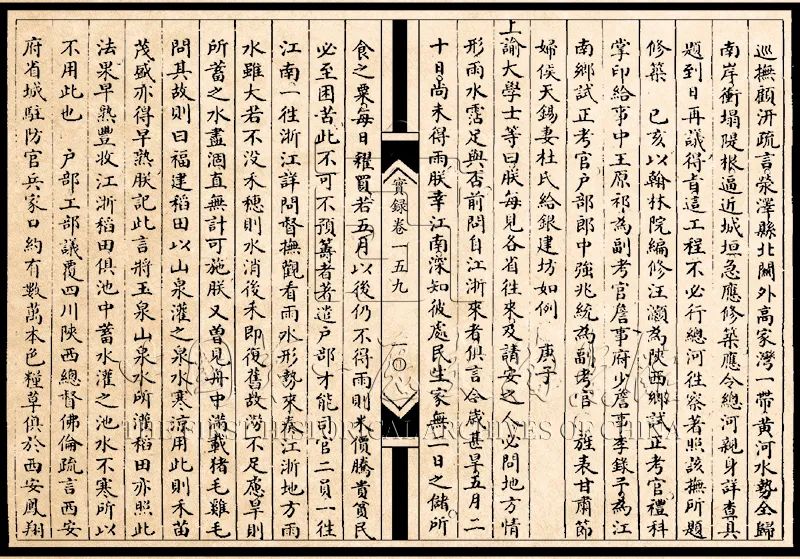 巡撫顧汧疏言滎澤縣北關外高家灣一帶黃河水勢全歸
南岸衝塌隄根逼近城垣急應修築應令總河親身詳查具
題到日再議得旨這工程不必行總河往察著照該撫所題
修築　己亥以翰林院編修汪灝為陝西鄉試正考官禮科
掌印給事中王原祁為副考官詹事府少詹事李錄予為江
南鄉試正考官戶部郎中強兆統為副考官　旌表甘肅節
婦侯天錫妻杜氏給銀建坊如例　庚子
上諭大學士等曰朕每見各省往來及請安之人必問地方情
形雨水霑足與否前問自江浙來者俱言今歲甚旱五月二
十日尚未得雨朕幸江南深知彼處民生家無一日之儲所
實錄卷一五九
一〇
食之粟每日糴買若五月以後仍不得雨則米價騰貴貧民
必至困苦此不可不預籌者著遣戶部才能司官二員一往
江南一往浙江詳問督撫觀看雨水形勢來奏江浙地方雨
水雖大若不沒禾穗則水消後禾即復舊故澇不足慮旱則
所蓄之水盡涸直無計可施朕又曾見舟中滿載猪毛雞毛
問其故則曰福建稻田以山泉灌之泉水寒涼用此則禾苗
茂盛亦得早熟朕記此言將玉泉山泉水所灌稻田亦照此
法果早熟豐收江浙稻田俱池中蓄水灌之池水不寒所以
不用此也　戶部工部議覆四川陝西總督佛倫疏言西安
府省城駐防官兵家口約有數萬本色糧草俱於西安鳳翔
THE FIRST HISTORICAL ARCHIVES OF CHINA